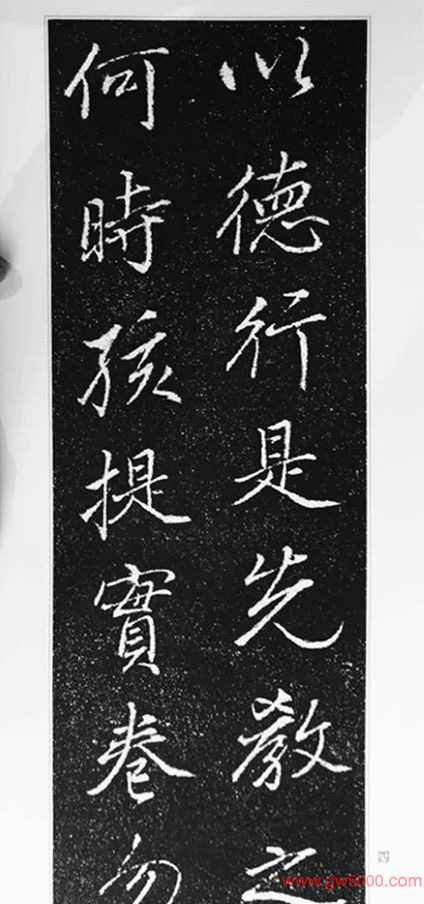 以德行是先教之
何時孩提實卷勿
www.gw5000.com